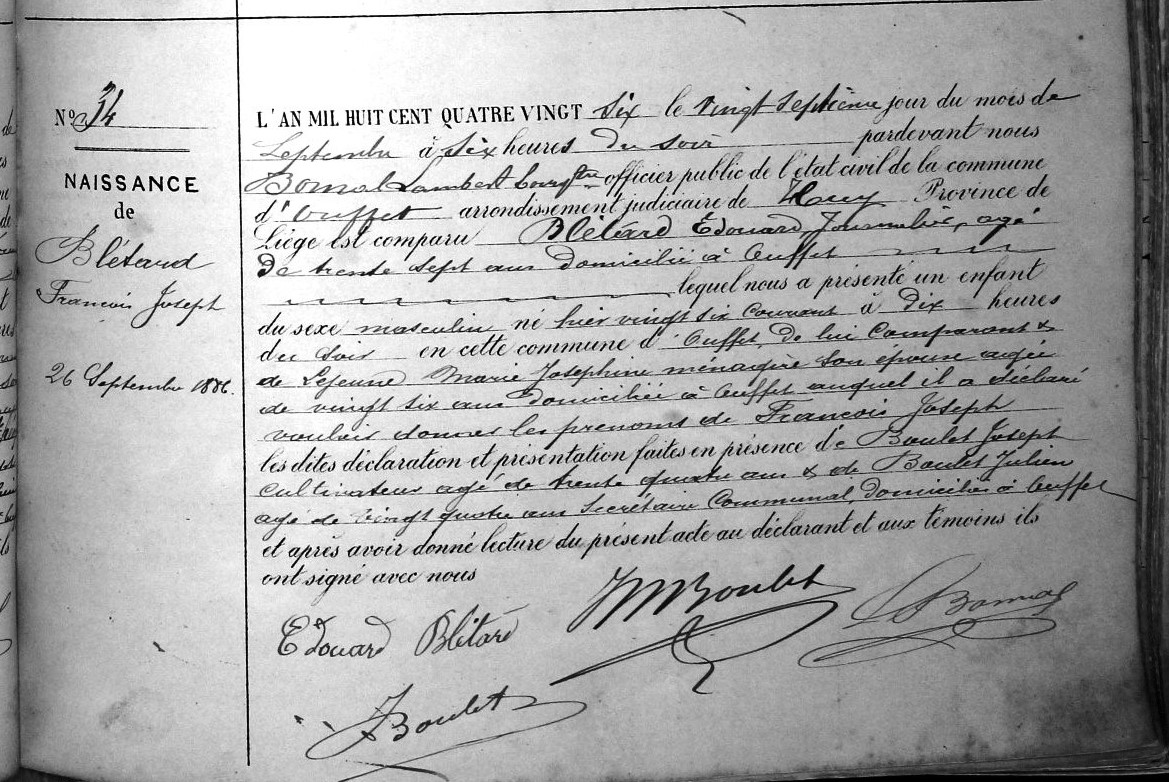 N° 34
NAISSANCE
de
Blétard
François Joseph
26 Septembre 1886.
L'AN MIL HUIT CENT QUATRE VINGT six le vingt septième jour du mois de
Septembre à six heures du soir pardevant nous
Bomal Lambert bourgtre officier public de l'état civil de la commune
d'Ouffet arrondissement judiciaire de Huy Province de
Liège est comparu Blétard Edouard, Journalier, agé
de trente sept ans domicilié à Ouffet
lequel nous a présenté un enfant
du sexe masculin né hier vingt six courant à dix heures
du soir en cette commune d'Ouffet, de lui comparant &
de Lejeune Marie Josephine ménagère son épouse agée
de vingt six ans domiciliée à Ouffet auquel il a déclaré
vouloir donner les prenoms de François Joseph
les dites déclaration et présentation faites en présence de Boulet Joseph
cultivateur agé de trente quatre ans & de Boulet Julien
agé de vingt quatre ans Secrétaire Communal, domiciliés à Ouffet
et après avoir donné lecture du présent acte au déclarant et aux témoins ils
ont signé avec nous
Edouard Blétard
Boulet
L Bomal
J Boulet